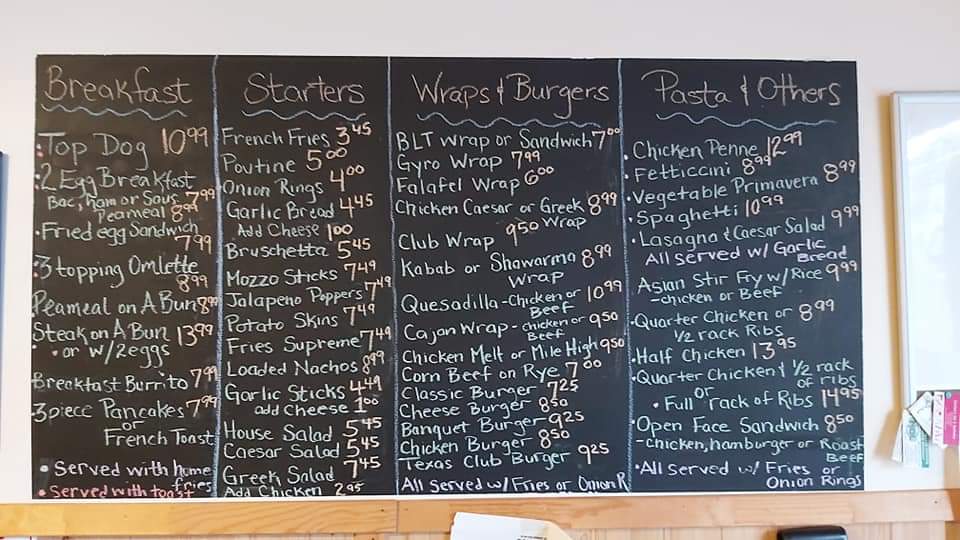 Breakfast
Top Dog 10.99
2 Egg Breakfast
Bac, ham or Saus 7.99
Peameal 8.99
Fried egg Sandwich
7.99
3 topping Omlette
8.99
Peameal on A Bun 8.99
Steak on A Bun 13.99
or w/2eggs
Breakfast Burrito 7.99
3piece Pancakes 7.99
or
French Toast
Served with home
fries
Served with toast
Starters
French Fries 3.45
Poutine 5.00
Onion Rings 4.00
Garlic Bread 4.45
Add Cheese 1.00
Bruschetta 5.45
Mozzo Sticks 7.49
Jalapeno Poppers 7.49
Potato Skins 7.49
Fries Supreme 7.49
Loaded Nachos 8.99
Garlic Sticks 4.49
add cheese 1.00
House Salad 5.45
Caesar Salad 5.45
Greek Salad 7.45
Add Chicken 2.95
Wraps & Burgers
BLT wrap or Sandwich 7.00
Gyro Wrap 7.99
Falafel Wrap 6.00
Chicken Caesar or Greek 8.99
Wrap
Club Wrap 9.50
Kabab or Shawarma 8.99
Wrap
Quesadilla - Chicken or 10.99
Beef
Cajan Wrap - chicken or 9.50
Beef
Chicken Melt or Mile High 9.50
Corn Beef on Rye 7.00
Classic Burger 7.25
Cheese Burger 8.50
Banquet Burger 9.25
Chicken Burger 8.50
Texas Club Burger 9.25
All Served w/ Fries or Onion R
Pasta & Others
Chicken Penne 12.99
Fetticcini 8.99
Vegetable Primavera 8.99
Spaghetti 10.99
Lasagna & Caesar Salad 9.99
All served w/ Garlic
Bread
Asian Stir Fry w/ Rice 9.99
- chicken or Beef
Quarter Chicken or 8.99
1/2 rack Ribs
Half Chicken 13.95
Quarter Chicken & 1/2 rack
of ribs
or
Full rack of Ribs 14.95
Open Face Sandwich 8.50
- Chicken, hamburger or Roast
Beef
All Served w/ Fries or
Onion Rings